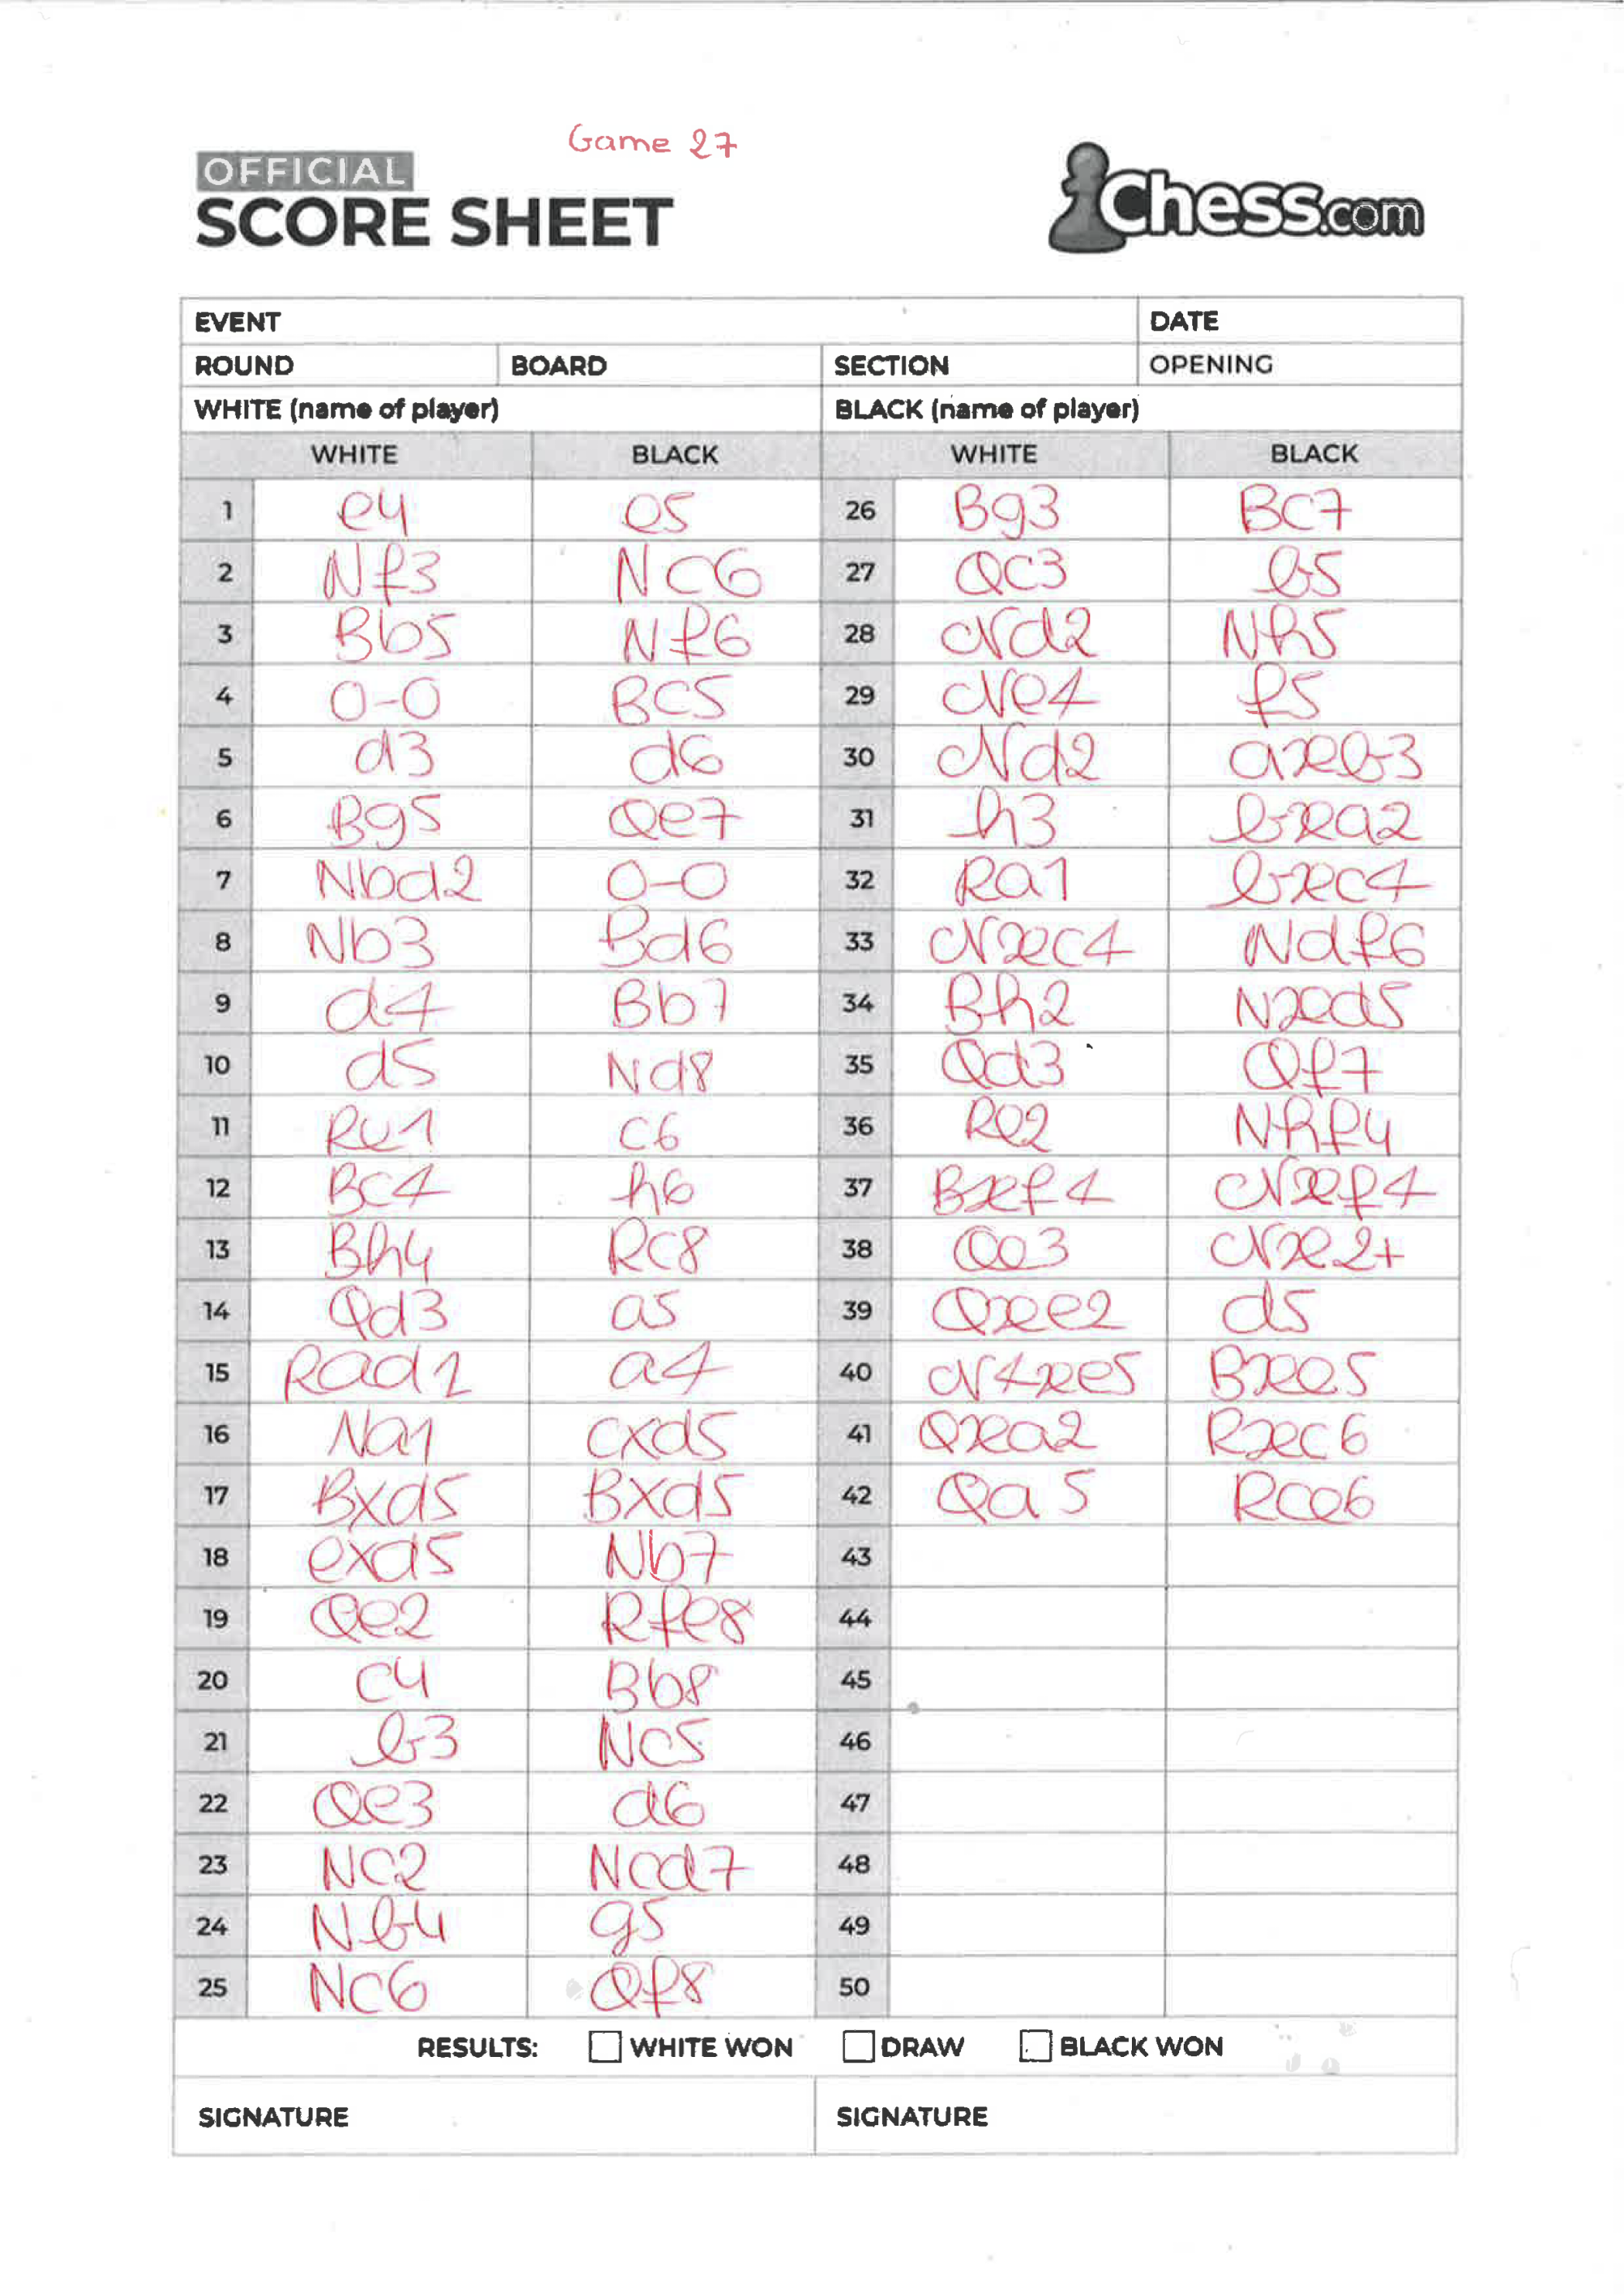 Game 27
OFFICIAL
SCORE SHEET
Chess.com
EVENT DATE
ROUND BOARD SECTION OPENING
WHITE (name of player) BLACK (name of player)
WHITE BLACK WHITE BLACK
1 e4 e5 26 Bg3 BC7
2 Nf3 NC6 27 QC3 b5
3 Bb5 Nf6 28 Nd2 Nh5
4 0-0 BC5 29 Ne4 f5
5 d3 d6 30 Nd2 axb3
6 Bg5 Qe7 31 h3 bxa2
7 Nbd2 0-0 32 Ra1 bxc4
8 Nb3 Bd6 33 Nxc4 Ndf6
9 d4 Bb7 34 Bh2 Nxd5
10 d5 Nd8 35 Qd3 Qf7
11 Re1 c6 36 Re2 Nhf4
12 BC4 h6 37 Bxf4 Nxf4
13 Bh4 RC8 38 Qe3 Nxe2+
14 Qd3 a5 39 Qxe2 d5
15 Rad1 a4 40 N4xe5 Bxe5
16 Na1 cxd5 41 Qxa2 Rxc6
17 Bxd5 Bxd5 42 Qa5 Rce6
18 exd5 Nb7 43
19 Qe2 Rfe8 44
20 C4 Bb8 45
21 b3 NC5 46
22 Qe3 d6 47
23 NC2 Ncd7 48
24 Nb4 g5 49
25 NC6 Qf8 50
RESULTS: WHITE WON DRAW BLACK WON
SIGNATURE SIGNATURE